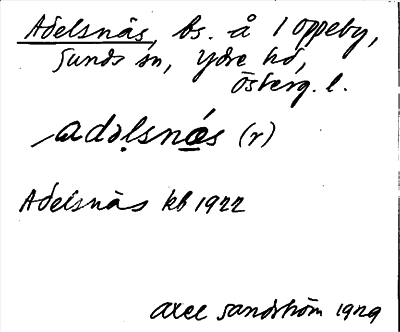 Adelsnäs, bs. å 1 Oppeby,
Sunds sn, Ydre hd,
Österg. l.
adəlsnǫ́s (r)
Adelsnäs kb 1922
Axel Sandström 1929